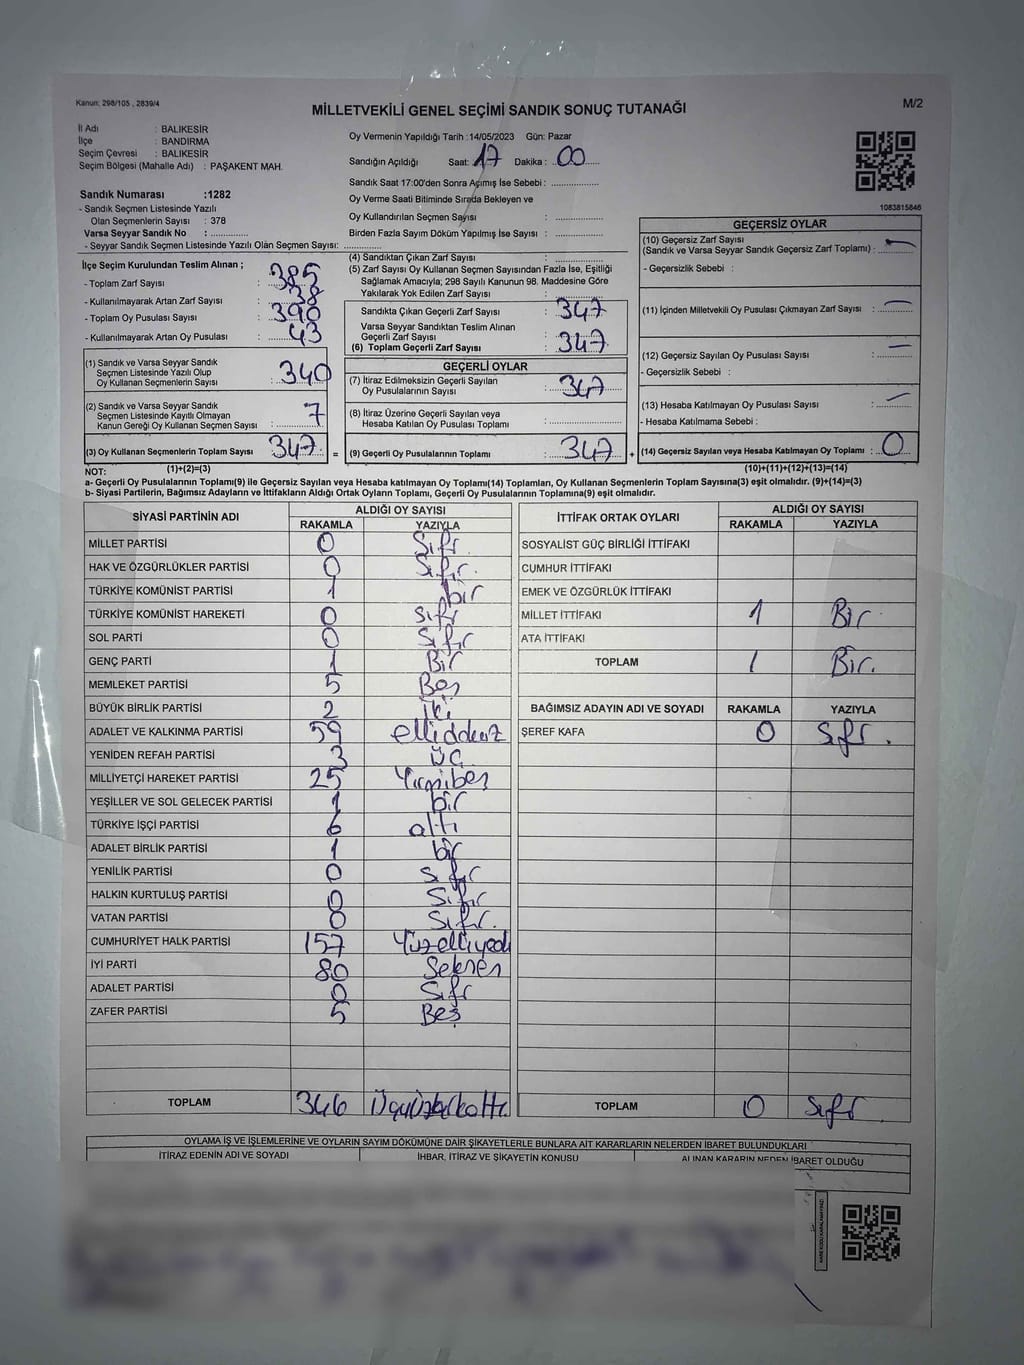 Kanun: 298/105 , 2839/4
M/2
MİLLETVEKİLİ GENEL SEÇİMİ SANDIK SONUÇ TUTANAĞI
İl Adı : BALIKESİR
İlçe : BANDIRMA
Seçim Çevresi : BALIKESİR
Seçim Bölgesi (Mahalle Adı) : PAŞAKENT MAH.
Sandık Numarası :1282
- Sandık Seçmen Listesinde Yazılı
Olan Seçmenlerin Sayısı : 378
Varsa Seyyar Sandık No : ..............
- Seyyar Sandık Seçmen Listesinde Yazılı Olan Seçmen Sayısı: ..............
Oy Vermenin Yapıldığı Tarih :14/05/2023 Gün: Pazar
Sandığın Açıldığı Saat: 17 Dakika : 00
Sandık Saat 17:00'den Sonra Açımış İse Sebebi : ..............
Oy Verme Saati Bitiminde Sırada Bekleyen ve
Oy Kullandırılan Seçmen Sayısı : ..............
Birden Fazla Sayım Döküm Yapılmış İse Sayısı : ..............
1083815846
İlçe Seçim Kurulundan Teslim Alınan ;
- Toplam Zarf Sayısı : 385
- Kullanılmayarak Artan Zarf Sayısı : 38
- Toplam Oy Pusulası Sayısı : 390
- Kullanılmayarak Artan Oy Pusulası : 43
(1) Sandık ve Varsa Seyyar Sandık
Seçmen Listesinde Yazılı Olup
Oy Kullanan Seçmenlerin Sayısı : 340
(2) Sandık ve Varsa Seyyar Sandık
Seçmen Listesinde Kayıtlı Olmayan
Kanun Gereği Oy Kullanan Seçmen Sayısı : 7
(3) Oy Kullanan Seçmenlerin Toplam Sayısı : 347 =
(4) Sandıktan Çıkan Zarf Sayısı : ..............
(5) Zarf Sayısı Oy Kullanan Seçmen Sayısından Fazla İse, Eşitliği
Sağlamak Amacıyla; 298 Sayılı Kanunun 98. Maddesine Göre
Yakılarak Yok Edilen Zarf Sayısı : ..............
Sandıkta Çıkan Geçerli Zarf Sayısı : 347
Varsa Seyyar Sandıktan Teslim Alınan
Geçerli Zarf Sayısı : ..............
(6) Toplam Geçerli Zarf Sayısı : 347
GEÇERLİ OYLAR
(7) İtiraz Edilmeksizin Geçerli Sayılan
Oy Pusulalarının Sayısı : 347
(8) İtiraz Üzerine Geçerli Sayılan veya
Hesaba Katılan Oy Pusulası Toplamı : ..............
(9) Geçerli Oy Pusulalarının Toplamı : 347 +
GEÇERSİZ OYLAR
(10) Geçersiz Zarf Sayısı
(Sandık ve Varsa Seyyar Sandık Geçersiz Zarf Toplamı) : —
- Geçersizlik Sebebi :
(11) İçinden Milletvekili Oy Pusulası Çıkmayan Zarf Sayısı : —
(12) Geçersiz Sayılan Oy Pusulası Sayısı : —
- Geçersizlik Sebebi :
(13) Hesaba Katılmayan Oy Pusulası Sayısı : —
- Hesaba Katılmama Sebebi :
(14) Geçersiz Sayılan veya Hesaba Katılmayan Oy Toplamı : 0
NOT: (1)+(2)=(3) (10)+(11)+(12)+(13)=(14)
a- Geçerli Oy Pusulalarının Toplamı(9) ile Geçersiz Sayılan veya Hesaba katılmayan Oy Toplamı(14) Toplamları, Oy Kullanan Seçmenlerin Toplam Sayısına(3) eşit olmalıdır. (9)+(14)=(3)
b- Siyasi Partilerin, Bağımsız Adayların ve İttifakların Aldığı Ortak Oyların Toplamı, Geçerli Oy Pusulalarının Toplamına(9) eşit olmalıdır.
SİYASİ PARTİNİN ADI ALDIĞI OY SAYISI
RAKAMLA YAZIYLA
MİLLET PARTİSİ 0 Sıfır
HAK VE ÖZGÜRLÜKLER PARTİSİ 0 Sıfır.
TÜRKİYE KOMÜNİST PARTİSİ 1 bir
TÜRKİYE KOMÜNİST HAREKETİ 0 sıfır
SOL PARTİ 0 Sıfır
GENÇ PARTİ 1 Bir
MEMLEKET PARTİSİ 5 Beş
BÜYÜK BİRLİK PARTİSİ 2 İki
ADALET VE KALKINMA PARTİSİ 59 ellidokuz
YENİDEN REFAH PARTİSİ 3 üç
MİLLİYETÇİ HAREKET PARTİSİ 25 Yirmibeş
YEŞİLLER VE SOL GELECEK PARTİSİ 1 bir
TÜRKİYE İŞÇİ PARTİSİ 6 altı
ADALET BİRLİK PARTİSİ 1 bir
YENİLİK PARTİSİ 0 sıfır
HALKIN KURTULUŞ PARTİSİ 0 Sıfır
VATAN PARTİSİ 0 Sıfır.
CUMHURİYET HALK PARTİSİ 157 Yüzelliyedi
İYİ PARTİ 80 Seksen
ADALET PARTİSİ 0 Sıfır
ZAFER PARTİSİ 5 Beş
TOPLAM 346 Üçyüzkırkaltı
İTTİFAK ORTAK OYLARI ALDIĞI OY SAYISI
RAKAMLA YAZIYLA
SOSYALİST GÜÇ BİRLİĞİ İTTİFAKI
CUMHUR İTTİFAKI
EMEK VE ÖZGÜRLÜK İTTİFAKI
MİLLET İTTİFAKI 1 Bir
ATA İTTİFAKI
TOPLAM 1 Bir.
BAĞIMSIZ ADAYIN ADI VE SOYADI RAKAMLA YAZIYLA
ŞEREF KAFA 0 Sıfır.
TOPLAM 0 Sıfır
OYLAMA İŞ VE İŞLEMLERİNE VE OYLARIN SAYIM DÖKÜMÜNE DAİR ŞİKAYETLERLE BUNLARA AİT KARARLARIN NELERDEN İBARET BULUNDUKLARI
İTİRAZ EDENİN ADI VE SOYADI İHBAR, İTİRAZ VE ŞİKAYETİN KONUSU ALINAN KARARIN NEDEN İBARET OLDUĞU